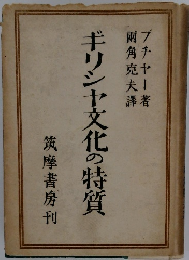 ブチャー著
兩角克夫譯
ギリシヤ文化の特質
筑摩書房刊